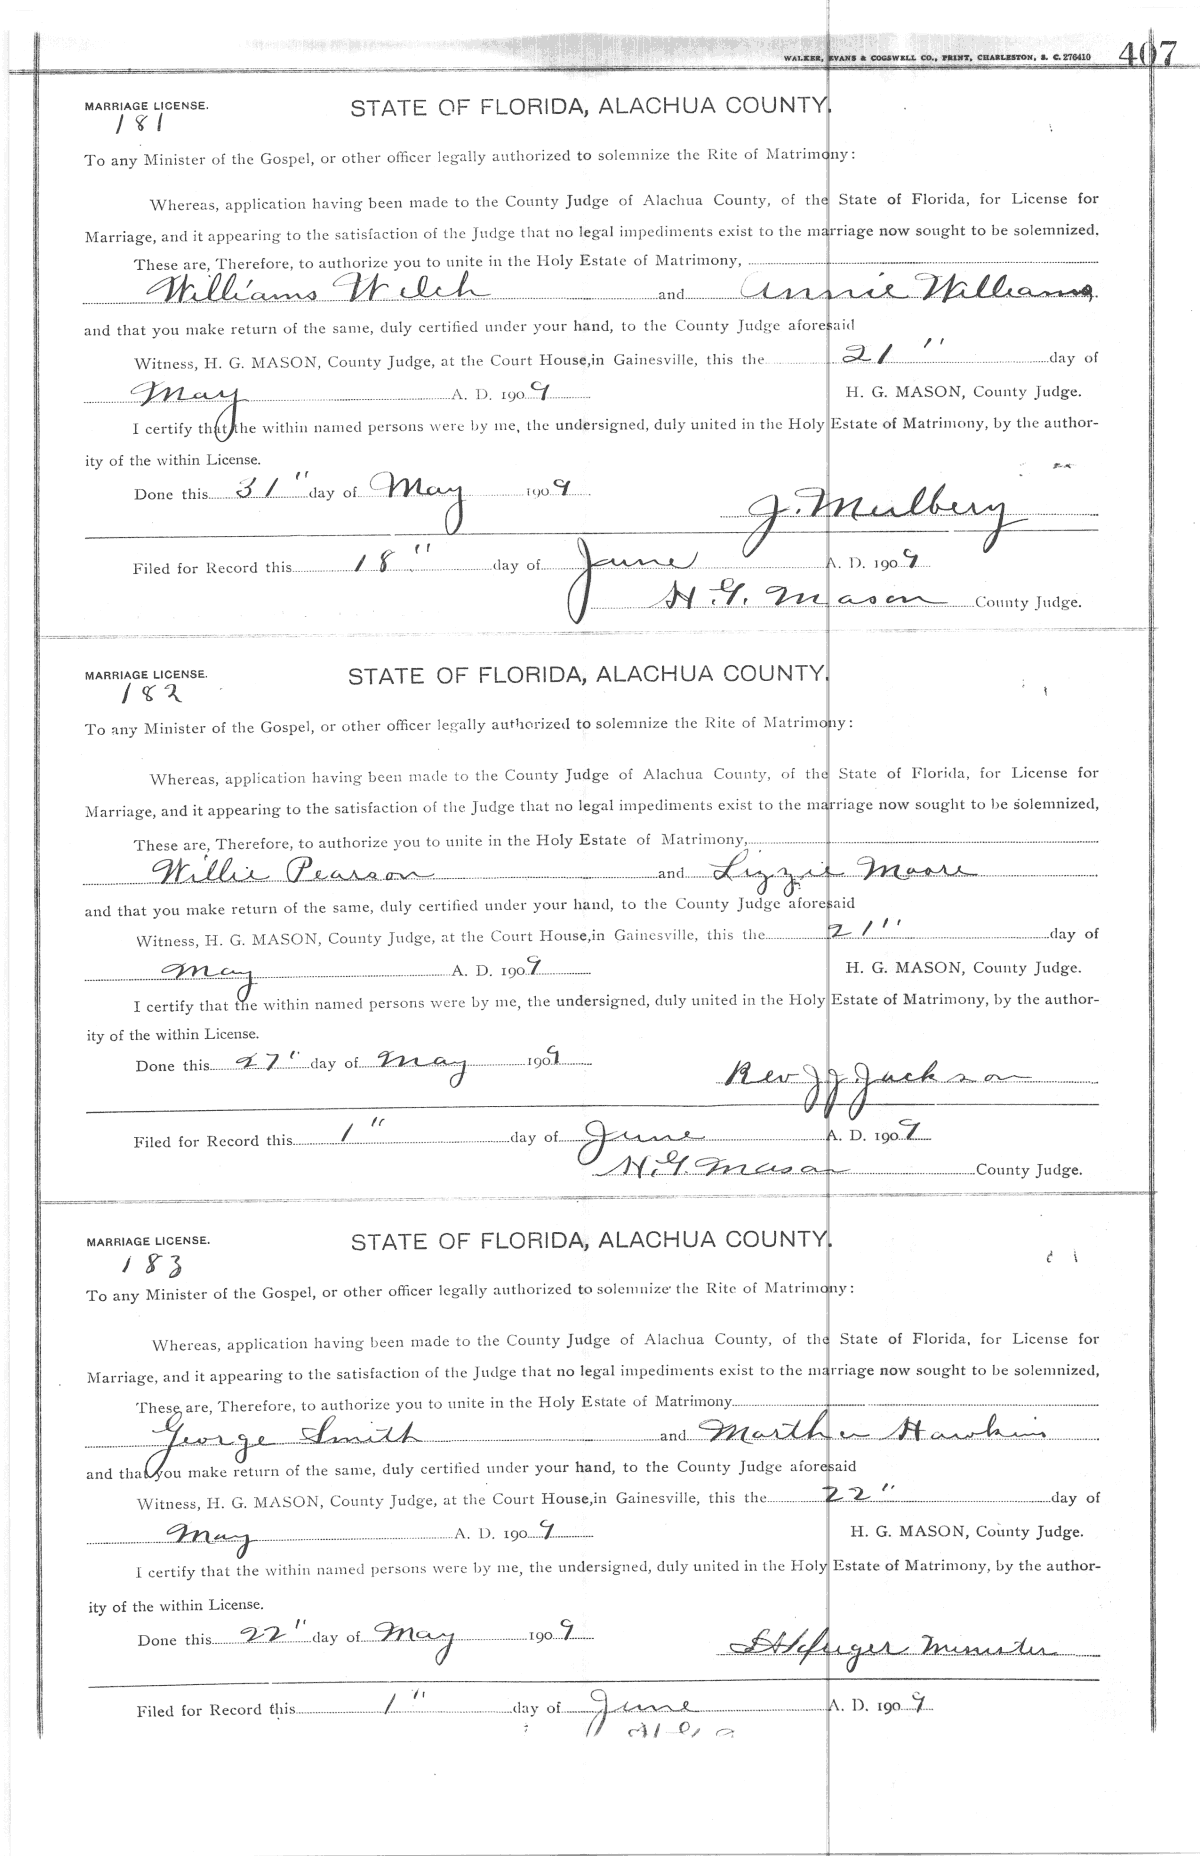 WALKER, EVANS & COGSWELL CO., PRINT, CHARLESTON, S. C. 276410 407
MARRIAGE LICENSE. STATE OF FLORIDA, ALACHUA COUNTY.
181
To any Minister of the Gospel, or other officer legally authorized to solemnize the Rite of Matrimony:
Whereas, application having been made to the County Judge of Alachua County, of the State of Florida, for License for
Marriage, and it appearing to the satisfaction of the Judge that no legal impediments exist to the marriage now sought to be solemnized.
These are, Therefore, to authorize you to unite in the Holy Estate of Matrimony,
Williams Welch and Annie Williams
and that you make return of the same, duly certified under your hand, to the County Judge aforesaid
Witness, H. G. MASON, County Judge, at the Court House,in Gainesville, this the 21" day of
May A. D. 1909 H. G. MASON, County Judge.
I certify that the within named persons were by me, the undersigned, duly united in the Holy Estate of Matrimony, by the author-
ity of the within License.
Done this 31" day of May 1909
J. Mulbery
Filed for Record this 18" day of June A. D. 1909
H. G. Mason County Judge.
MARRIAGE LICENSE. STATE OF FLORIDA, ALACHUA COUNTY.
182
To any Minister of the Gospel, or other officer legally authorized to solemnize the Rite of Matrimony:
Whereas, application having been made to the County Judge of Alachua County, of the State of Florida, for License for
Marriage, and it appearing to the satisfaction of the Judge that no legal impediments exist to the marriage now sought to be solemnized,
These are, Therefore, to authorize you to unite in the Holy Estate of Matrimony,
Willie Pearson and Lizzie Moore
and that you make return of the same, duly certified under your hand, to the County Judge aforesaid
Witness, H. G. MASON, County Judge, at the Court House,in Gainesville, this the 21" day of
May A. D. 1909 H. G. MASON, County Judge.
I certify that the within named persons were by me, the undersigned, duly united in the Holy Estate of Matrimony, by the author-
ity of the within License.
Done this 27" day of May 1909
Rev J J Jackson
Filed for Record this 1" day of June A. D. 1909
H. G. Mason County Judge.
MARRIAGE LICENSE. STATE OF FLORIDA, ALACHUA COUNTY.
183
To any Minister of the Gospel, or other officer legally authorized to solemnize the Rite of Matrimony:
Whereas, application having been made to the County Judge of Alachua County, of the State of Florida, for License for
Marriage, and it appearing to the satisfaction of the Judge that no legal impediments exist to the marriage now sought to be solemnized,
These are, Therefore, to authorize you to unite in the Holy Estate of Matrimony
George Smith and Marther Hawkins
and that you make return of the same, duly certified under your hand, to the County Judge aforesaid
Witness, H. G. MASON, County Judge, at the Court House,in Gainesville, this the 22" day of
May A. D. 1909 H. G. MASON, County Judge.
I certify that the within named persons were by me, the undersigned, duly united in the Holy Estate of Matrimony, by the author-
ity of the within License.
Done this 22" day of May 1909
Minister
Filed for Record this 1" day of June A. D. 1909